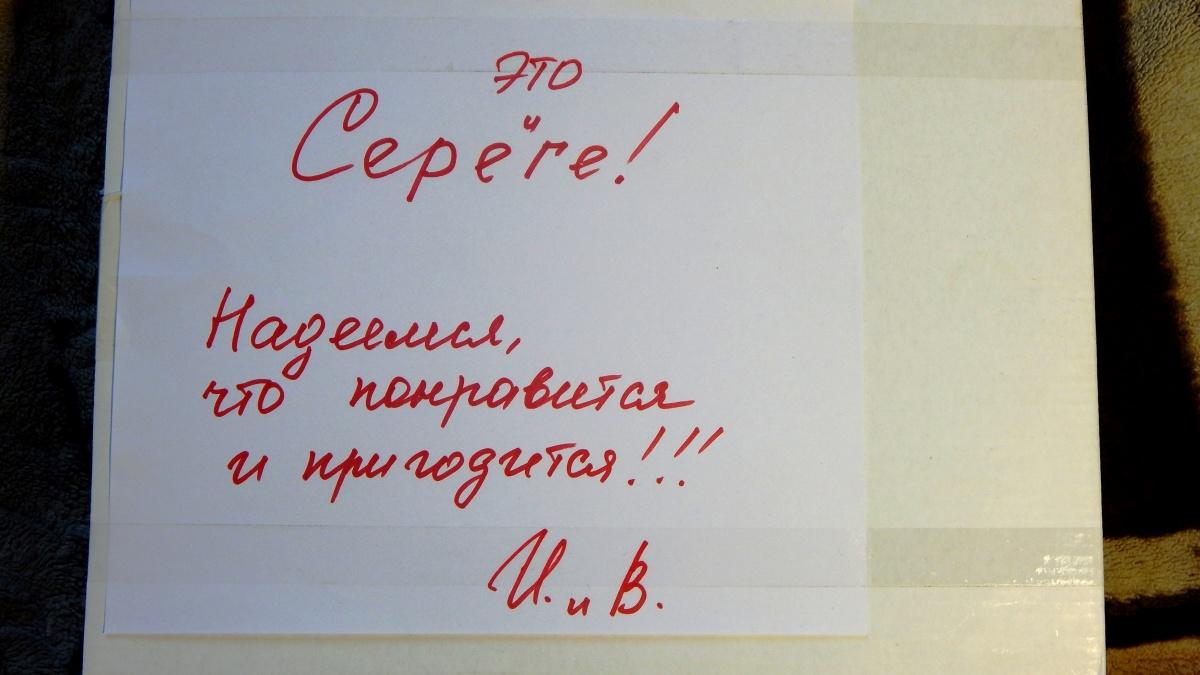 это
Серёге!
Надеемся,
что понравится
и пригодится!!!
И. и В.